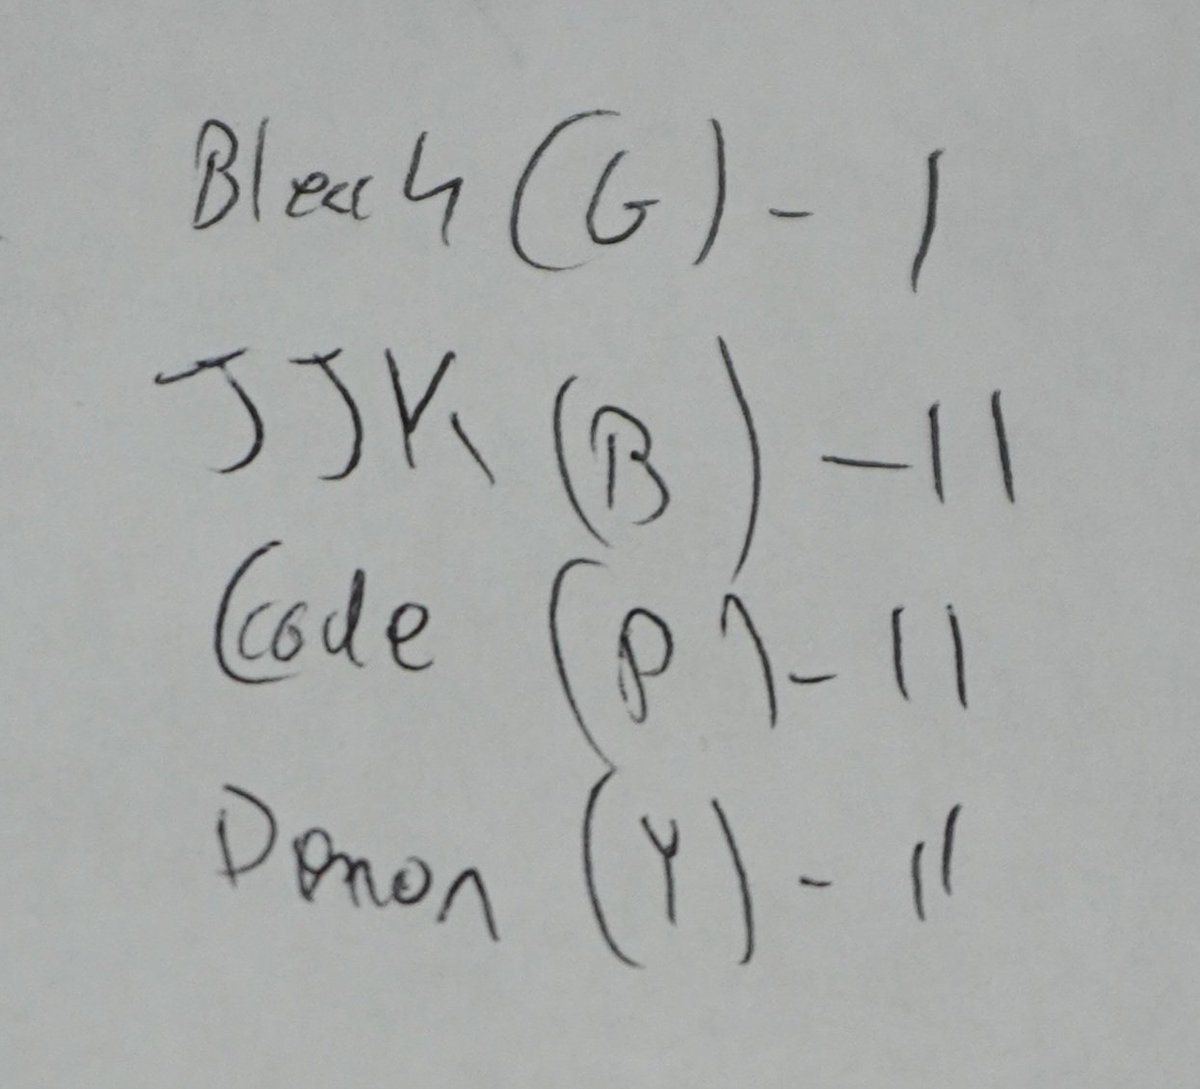 Bleach (G) - 1
JJK (B) - 11
Code (P) - 11
Demon (Y) - 11